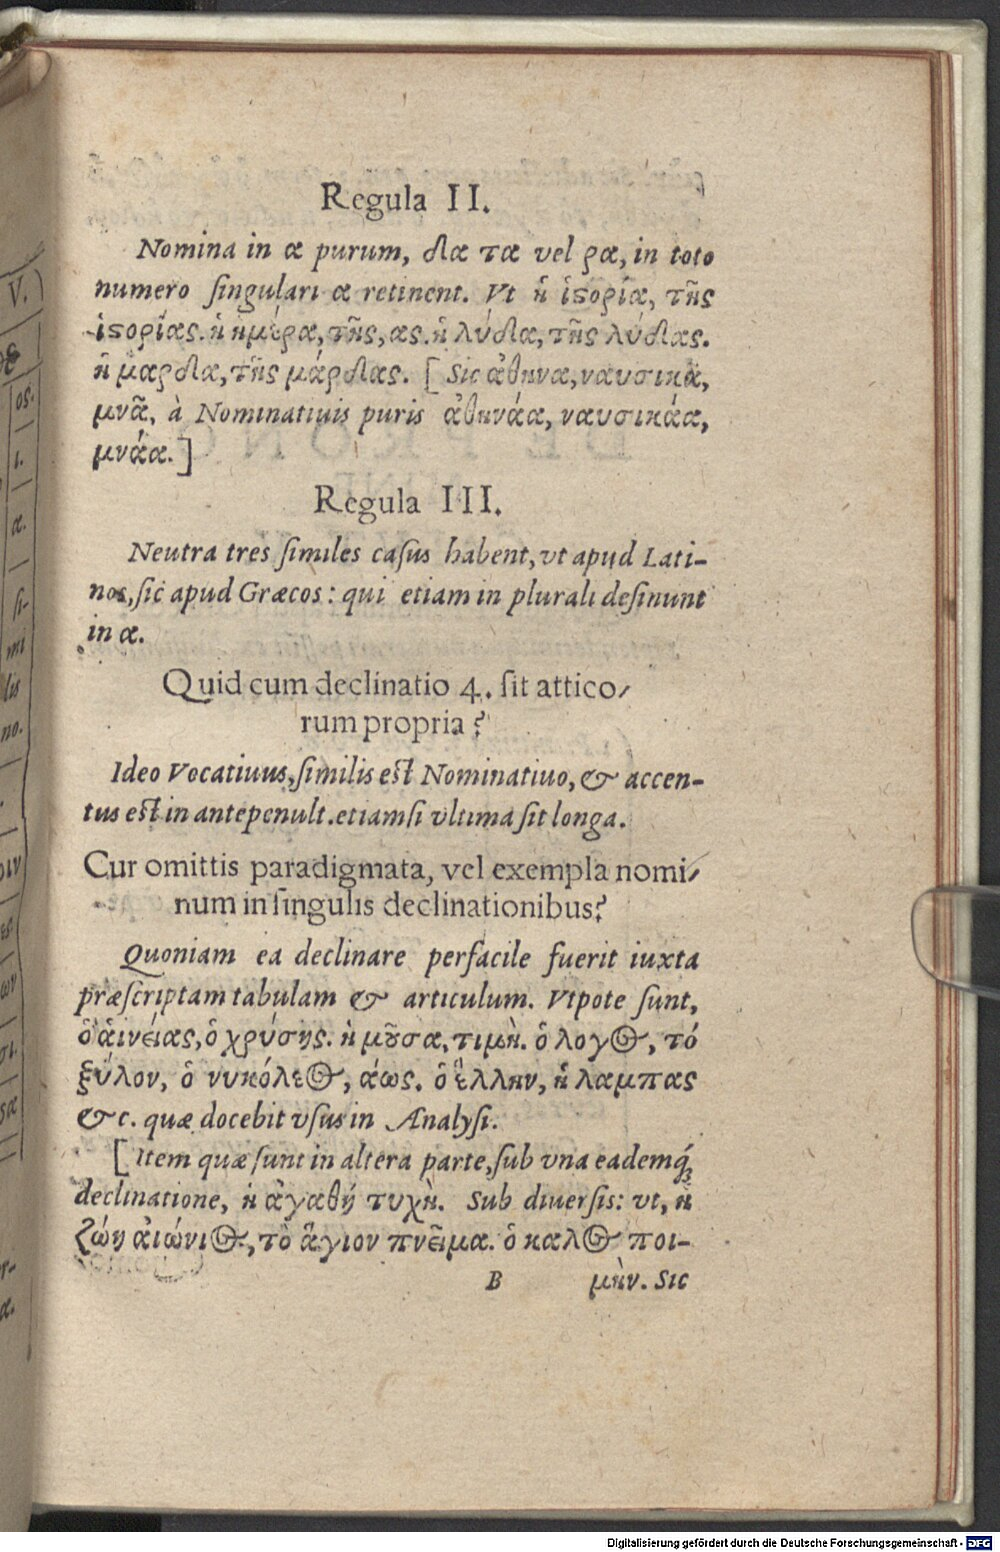 Regula II.
Nomina in α purum, δα τα vel ρα, in toto
numero ſingulari α retinent. Vt ἡ ἱϛορία, τῆς
ἱϛορίας. ἡ ἡμέρα, τῆς, ας. ἡ λύδα, τῆς λύδας.
ἡ μαρδα, τῆς μάρδας. [ Sic ἀθηνα, ναυσικᾶ,
μνᾶ, à Nominatiuis puris ἀθηνάα, ναυσικάα,
μνάα. ]
Regula III.
Neutra tres ſimiles caſus habent, vt apud Lati-
nos, ſic apud Græcos: qui etiam in plurali deſinunt
in α.
Quid cum declinatio 4. ſit attico-
rum propria?
Ideo Vocatiuus, ſimilis eſt Nominatiuo, & accen-
tus eſt in antepenult. etiamſi vltima ſit longa.
Cur omittis paradigmata, vel exempla nomi-
num in ſingulis declinationibus?
Quoniam ea declinare perfacile fuerit iuxta
præſcriptam tabulam & articulum. Vtpote ſunt,
ὁ ἀινείας, ὁ χρύσης. ἡ μοῦσα, τιμὴ. ὁ λογος, τό
ξύλον, ὁ νυκόλεος, άως. ὁ ἕλλην, ἡ λαμπας
&c. quæ docebit vſus in Analyſi.
[ Item quæ ſunt in altera parte, ſub vna eademq́;
declinatione, ἡ ἀγαθή τυχὴ. Sub diuerſis: vt, ἡ
ζώη ἀιώνιος, τὸ ἅγιον πνεῖμα. ὁ καλος ποι-
B μὴν. Sic
V.
os.
ι.
α.
ſi-
mi
lis
no.
Digitalisierung gefördert durch die Deutsche Forschungsgemeinschaft - DFG